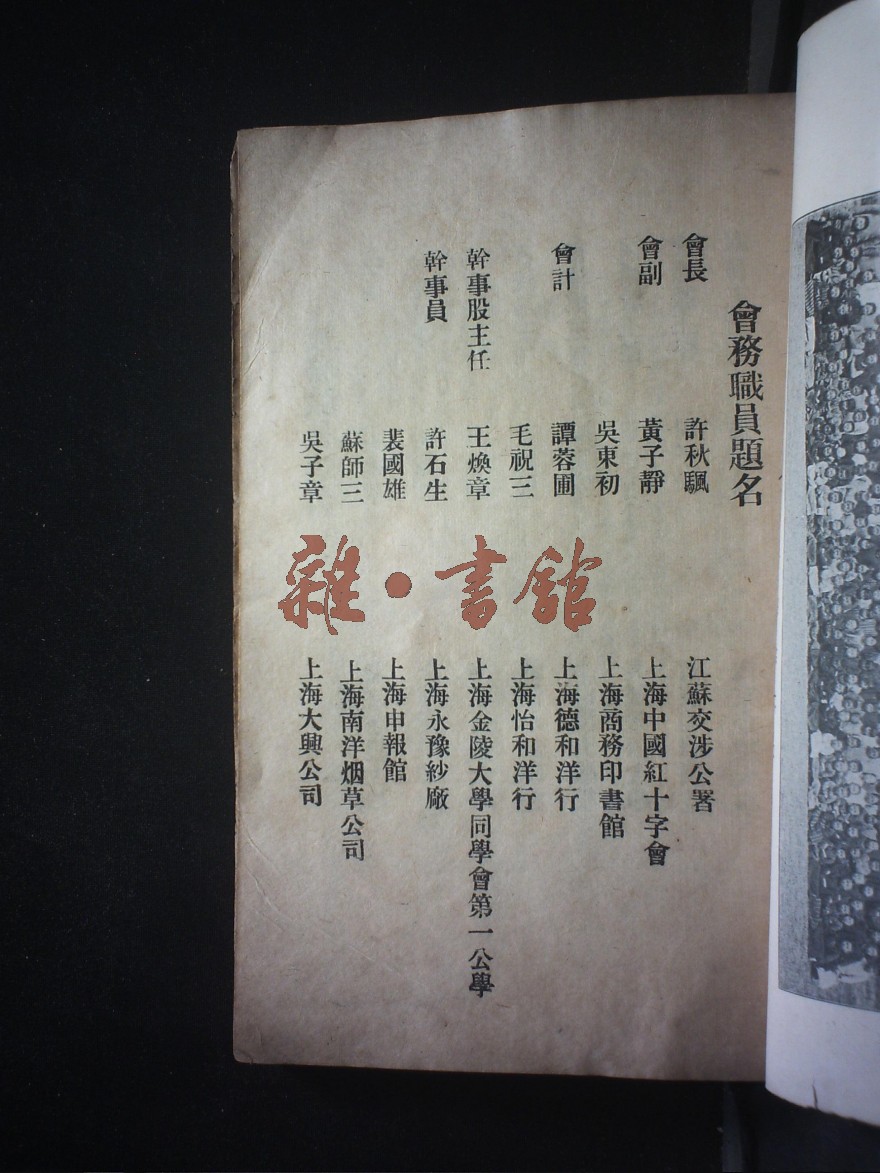 會務職員題名
會長 許秋颿 江蘇交涉公署
會副 黃子靜 上海中國紅十字會
吳東初 上海商務印書館
會計 譚蓉圃 上海德和洋行
毛祝三 上海怡和洋行
幹事股主任 王煥章 上海金陵大學同學會第一公學
幹事員 許石生 上海永豫紗廠
裴國雄 上海申報館
蘇師三 上海南洋烟草公司
吳子章 上海大興公司
雜·書館